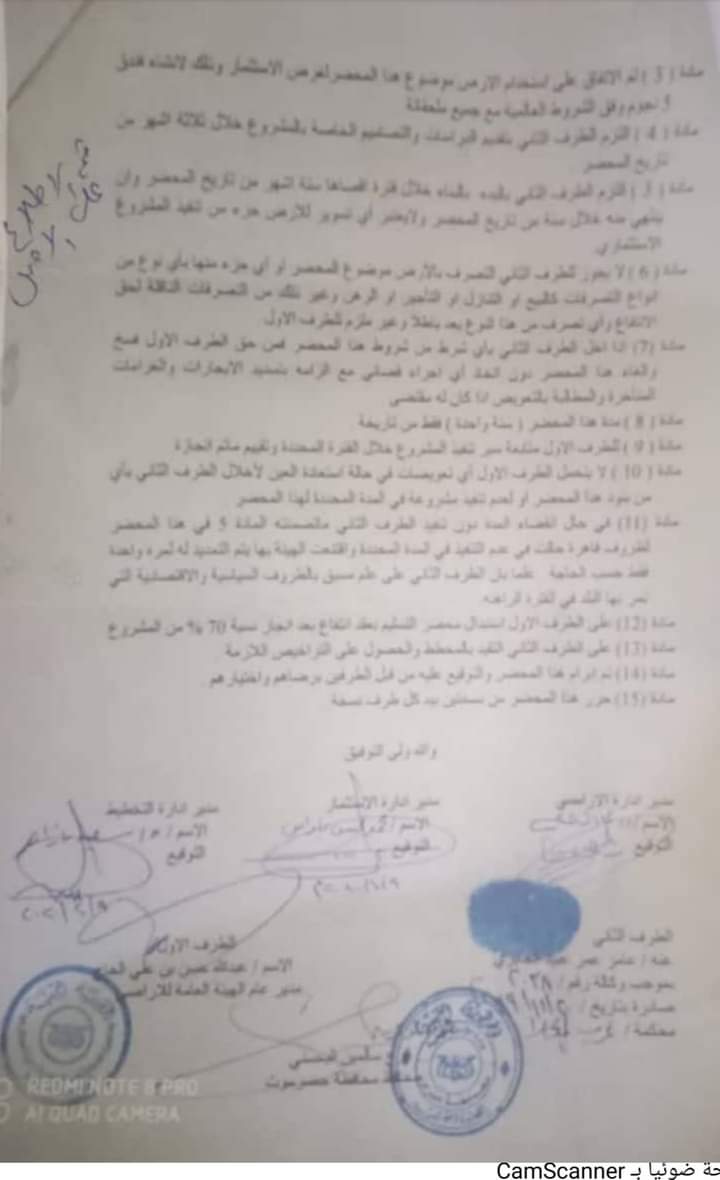 مادة ( 3 ) تم الاتفاق على استخدام الارض موضوع هذا المحضر لغرض الاستثمار وذلك لانشاء فندق
5 نجوم وفق الشروط العالمية مع جميع ملحقاته
مادة ( 4 ) التزم الطرف الثاني بتقديم الدراسات والتصاميم الخاصة بالمشروع خلال ثلاثة اشهر من
تاريخ المحضر
مادة ( 5 ) التزم الطرف الثاني بالبدء بالبناء خلال فترة اقصاها ستة اشهر من تاريخ المحضر وان
ينتهي منه خلال سنة من تاريخ المحضر ولايعتبر أي تسوير للارض جزء من تنفيذ المشروع
الاستثماري
مادة ( 6 ) لا يجوز للطرف الثاني التصرف بالارض موضوع المحضر او أي جزء منها بأي نوع من
انواع التصرفات كالبيع او التنازل او التأجير او الرهن وغير ذلك من التصرفات الناقلة لحق
الانتفاع وأي تصرف من هذا النوع يعد باطلا وغير ملزم للطرف الاول
مادة (7) اذا اخل الطرف الثاني بأي شرط من شروط هذا المحضر فمن حق الطرف الاول فسخ
والغاء هذا المحضر دون اتخاذ أي اجراء قضائي مع الزامه بتسديد الايجارات والغرامات
المتأخرة والمطالبة بالتعويض اذا كان له مقتضى
مادة ( 8 ) مدة هذا المحضر ( سنة واحدة ) فقط من تاريخة
مادة ( 9 ) للطرف الاول متابعة سير تنفيذ المشروع خلال الفترة المحددة وتقييم ماتم انجازة
مادة ( 10 ) لا يتحمل الطرف الاول أي تعويضات في حالة استعادة العين لأخلال الطرف الثاني بأي
من بنود هذا المحضر او لعدم تنفيذ مشروعة في المدة المحددة لهذا المحضر
مادة (11) في حال انقضاء المدة دون تنفيذ الطرف الثاني ماتضمنته المادة 5 في هذا المحضر
لظروف قاهرة حالت في عدم التنفيذ في المدة المحددة واقتنعت الهيئة بها يتم التمديد له لمره واحدة
فقط حسب الحاجة علما بان الطرف الثاني على علم مسبق بالظروف السياسية والاقتصادية التي
تمر بها البلد في الفترة الراهنه
مادة (12) على الطرف الاول استبدال محضر التسليم بعقد انتفاع بعد انجاز نسبة 70 % من المشروع
مادة (13) على الطرف الثاني التقيد بالمخطط والحصول على التراخيص اللازمة
مادة (14) تم ابرام هذا المحضر والتوقيع عليه من قبل الطرفين برضاهم واختيارهم
مادة (15) حرر هذا المحضر من نسختين بيد كل طرف نسخة
والله ولي التوفيق
مدير ادارة الاراضي
الاسم /
التوقيع
مدير ادارة الاستثمار
الاسم /
التوقيع
مدير ادارة التخطيط
الاسم /
التوقيع
الطرف الثاني
عنه / عامر عمر
بموجب وكالة رقم /
صادرة بتاريخ /
محكمة /
الطرف الاول
الاسم / عبدالله حسن بن علي
مدير عام الهيئة العامة للاراضي
محافظ محافظة حضرموت
REDMI NOTE 8 PRO
AI QUAD CAMERA
حة ضوئيا بـ CamScanner